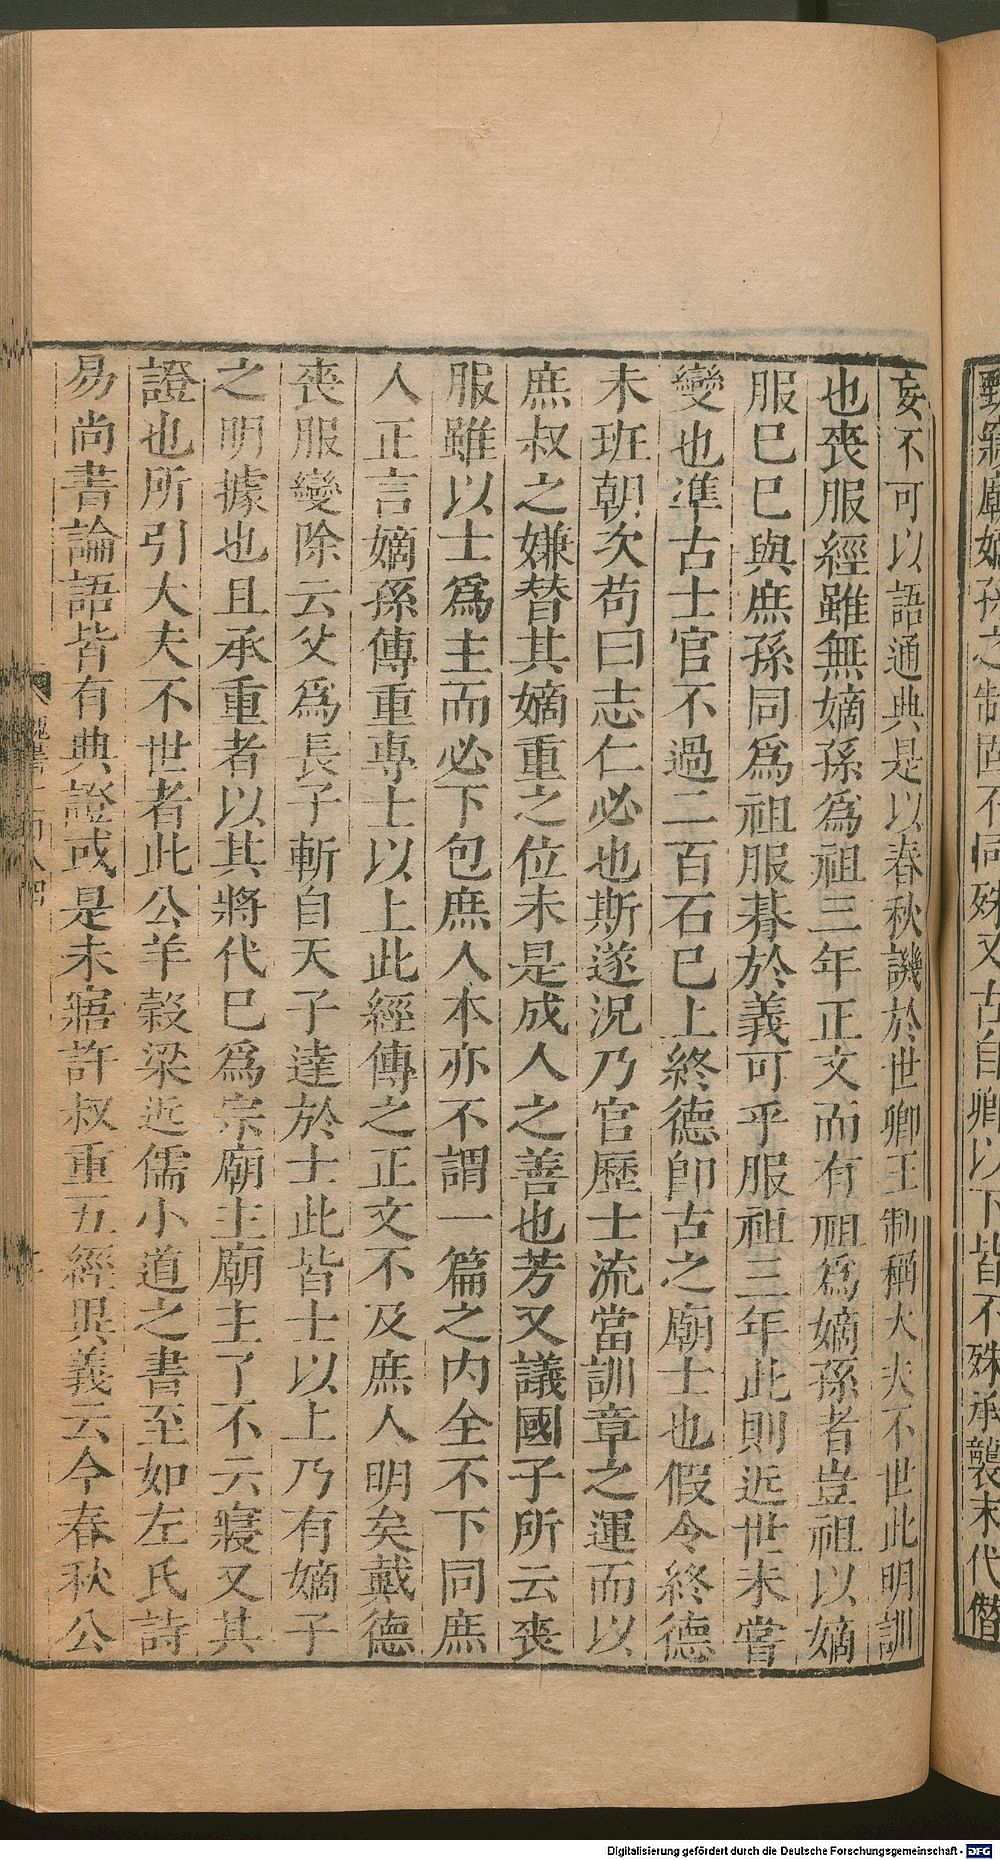 妄不可以語通典是以春秋譏於世卿王制稱大夫不世此明訓
也喪服經雖無嫡孫爲祖三年正文而有祖爲嫡孫者豈祖以嫡
服巳巳與庶孫同爲祖服朞於義可乎服祖三年此則近世未嘗
變也準古士官不過二百石巳上終德卽古之廟士也假令終德
未班朝次苟曰志仁必也斯遂況乃官歷士流當訓章之運而以
庶叔之嫌替其嫡重之位未是成人之善也芳又議國子所云喪
服雖以士爲主而必下包庶人本亦不謂一篇之内全不下同庶
人正言嫡孫傳重專士以上此經傳之正文不及庶人明矣戴德
喪服變除云父爲長子斬自天子達於士此皆士以上乃有嫡子
之明據也且承重者以其將代巳爲宗廟主廟主了不云寢又其
證也所引大夫不世者此公羊穀梁近儒小道之書至如左氏詩
易尚書論語皆有典證或是未寤許叔重五經異義云今春秋公
殊又古自卿以下皆不殊承襲末代僭
Digitalisierung gefördert durch die Deutsche Forschungsgemeinschaft - DFG